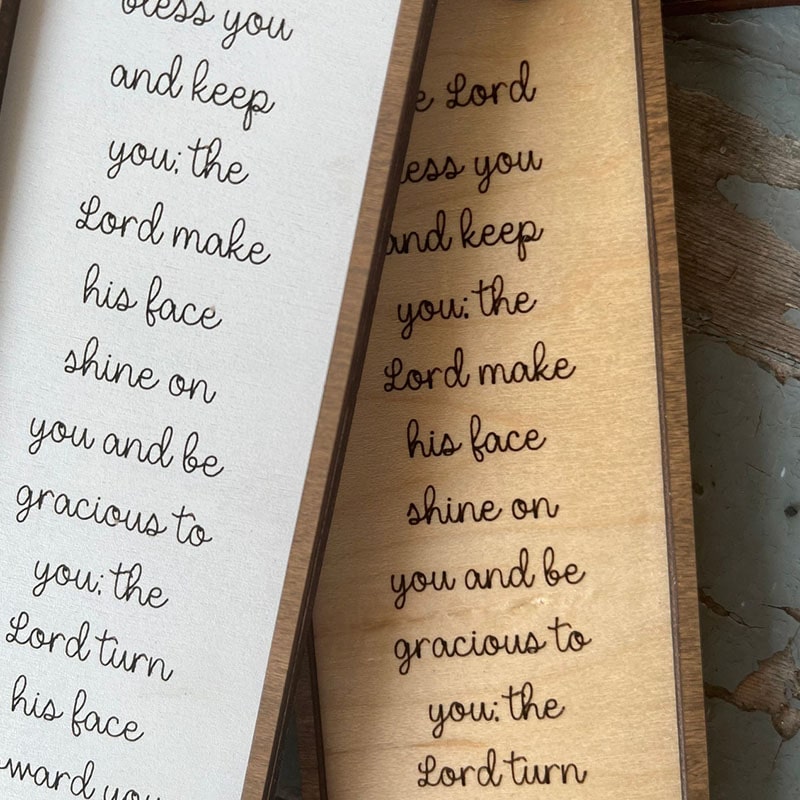 bless you
and keep
you; the
Lord make
his face
shine on
you and be
gracious to
you; the
Lord turn
his face
you
Lord
you
and keep
you; the
Lord make
his face
shine on
you and be
gracious to
you; the
Lord turn